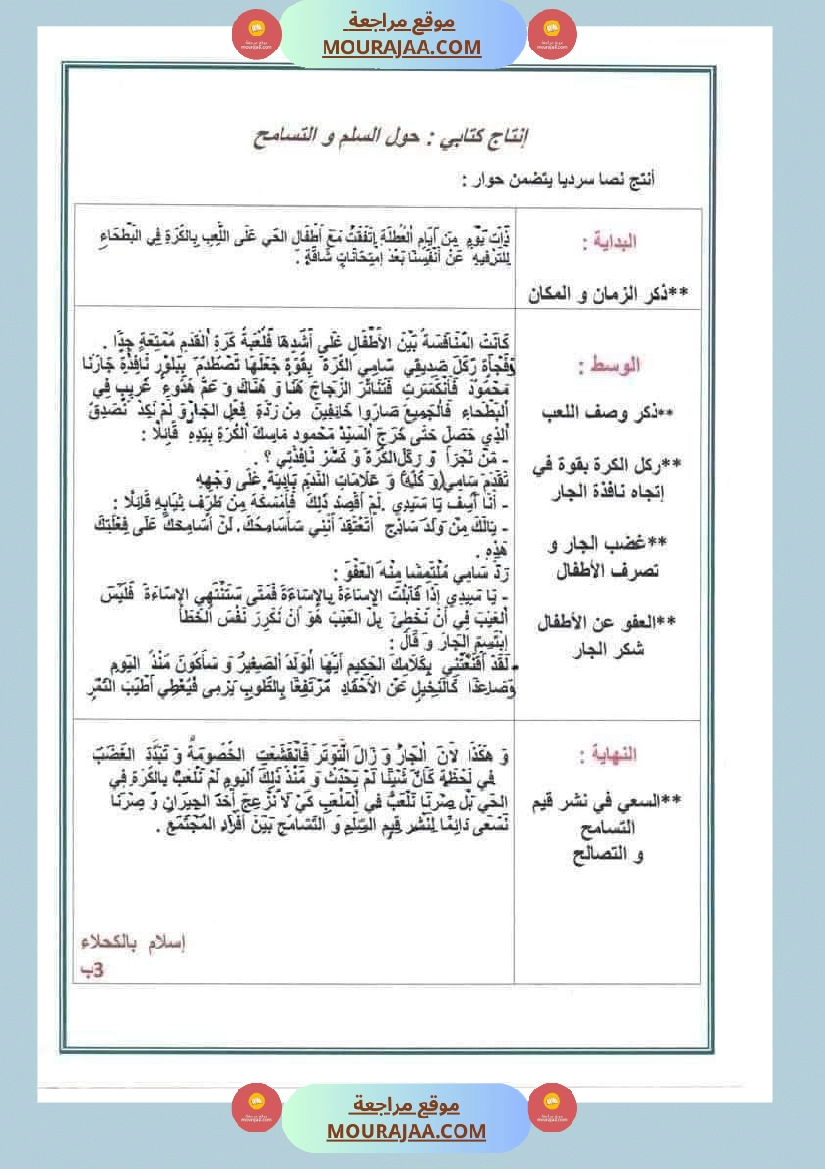 موقع مراجعة
MOURAJAA.COM
إنتاج كتابي : حول السلم و التسامح
أنتج نصا سرديا يتضمن حوار :
البداية :
**ذكر الزمان و المكان
ذَاتَ يَوْمٍ مِنَ أَيَامِ الْعُطْلَةِ إِتَفَقْتُ مَعَ أَطْفَالِ الحَي عَلَى اللَّعِبِ بِالكُرَةِ فِي البَطْحَاءِ
لِلتَرْفِيهِ عَنْ أَنْفُسِنَا بَعْدَ إِمْتِحَانَاتٍ شَاقَّةٍ .
الوسط :
**ذكر وصف اللعب
**ركل الكرة بقوة في
إتجاه نافذة الجار
**غضب الجار و
تصرف الأطفال
**العفو عن الأطفال
شكر الجار
كَانَتْ المُنَافَسَةُ بَيْنَ الأَطْفَالِ عَلَى أَشُدِهَا فَلُعْبَةُ كُرَةِ الْقَدَمِ مُمْتِعَةٍ جِدًا .
وَفَجْأَةً رَكَلَ صَدِيقِي سَامِي الكُرَةَ بِقُوَةٍ جَعَلَهَا تَصْطَدِمُ بِبَلُورِ نَافِذَةِ جَارِنَا
مَحْمُودْ فَانْكَسَرَتْ فَتَنَاثَرَ الزُجَاجَ هُنَا وَ هُنَاكَ وَ عَمَّ هُدُوءٌ غَرِيبٌ فِي
البَطْحَاءِ فَالجَمِيعُ صَارُوا خَائِفِينَ مِنْ رَدَّةِ فِعْلِ الجَارِ وَ لَمْ نَكِدْ نُصَدِقُ
الذِي حَصَلَ حَتَى خَرَجَ السَيِّدُ مَحْمود مَاسِكَ الْكُرَةَ بِيَدِهِ قَائِلًا :
- مَنْ تَجَرَأَ وَ رَكَلَ الكُرَةَ وَ كَسَّرَ نَافِذَتِي ؟ .
تَقَدَمَ سَامِي(وَ كُلُّهُ) وَ عَلَامَاتِ النَدَمِ بَادِيَة عَلَى وَجْهِهِ
- أَنَا آسِفْ يَا سَيِدِي .لَمْ أَقْصِدْ ذَلِكَ فَأَمْسَكَهُ مِنْ طَرَفِ ثِيَابِهِ قَائِلًا :
- يَالَكَ مِنْ وَلَدٍ سَاذِجٍ أَتَعْتَقِدُ أَنَّنِي سَأُسَامِحُكَ. لَنْ أُسَامِحَكَ عَلَى فِعْلَتِكَ
هَذِهِ .
رَدَّ سَامِي مُلْتَمِسًا مِنْهُ العَفْوَ :
- يَا سَيِدِي إِذَا قَابَلْتَ الإِسَاءَةَ بِالإِسَاءَةِ فَمَتَى سَتَنْتَهِي الإِسَاءَةُ فَلَيْسَ
العَيْبَ فِي أَنْ نُخْطِئَ بَلْ العَيْبَ هُوَ أَنْ نُكَرِرَ نَفْسَ الْخَطَأَ
إِبْتَسَمَ الجَارُ وَ قَالَ :
- لَقَدْ أَقْنَعْتَنِي بِكَلَامِكَ الحَكِيمِ أَيُهَا الْوَلَدُ الصَغِيرُ وَ سَأَكُونَ مُنْذُ اليَوْمِ
وَصَاعِدًا كَالنَخِيلِ عَنْ الأَحْقَادِ مُرْتَفِعًا بِالطُوبِ يُرْمَى فَيُعْطِي أَطْيَبَ التَمْرِ
النهاية :
**السعي في نشر قيم
التسامح
و التصالح
وَ هَكَذَا لَانَ الْجَارُ وَ زَالَ التَّوَتُرَ فَانْقَشَعَتِ الخُصُومَةُ وَ تَبَدَّدَ الغَضَبُ
فِي لَحْظَةٍ كَأَنَّ شَيْئًا لَمْ يَحْدُثْ وَ مُنْذُ ذَلِكَ اليَومِ لَمْ نَلْعَبْ بِالكُرَةِ فِي
الحَي بَلْ صِرْنَا نَلْعَبُ فِي المَلْعَبِ كَيْ لَا نُزْعِجَ أَحَدَ الجِيرَانِ وَ صِرْنَا
نَسْعَى دَائِمًا لِنَشْرِ قِيَمِ السِّلْمِ وَ التَسَامُحِ بَيْنَ أَفْرَادِ المُجْتَمَعِ .
إسلام بالكحلاء
3ب
موقع مراجعة
MOURAJAA.COM